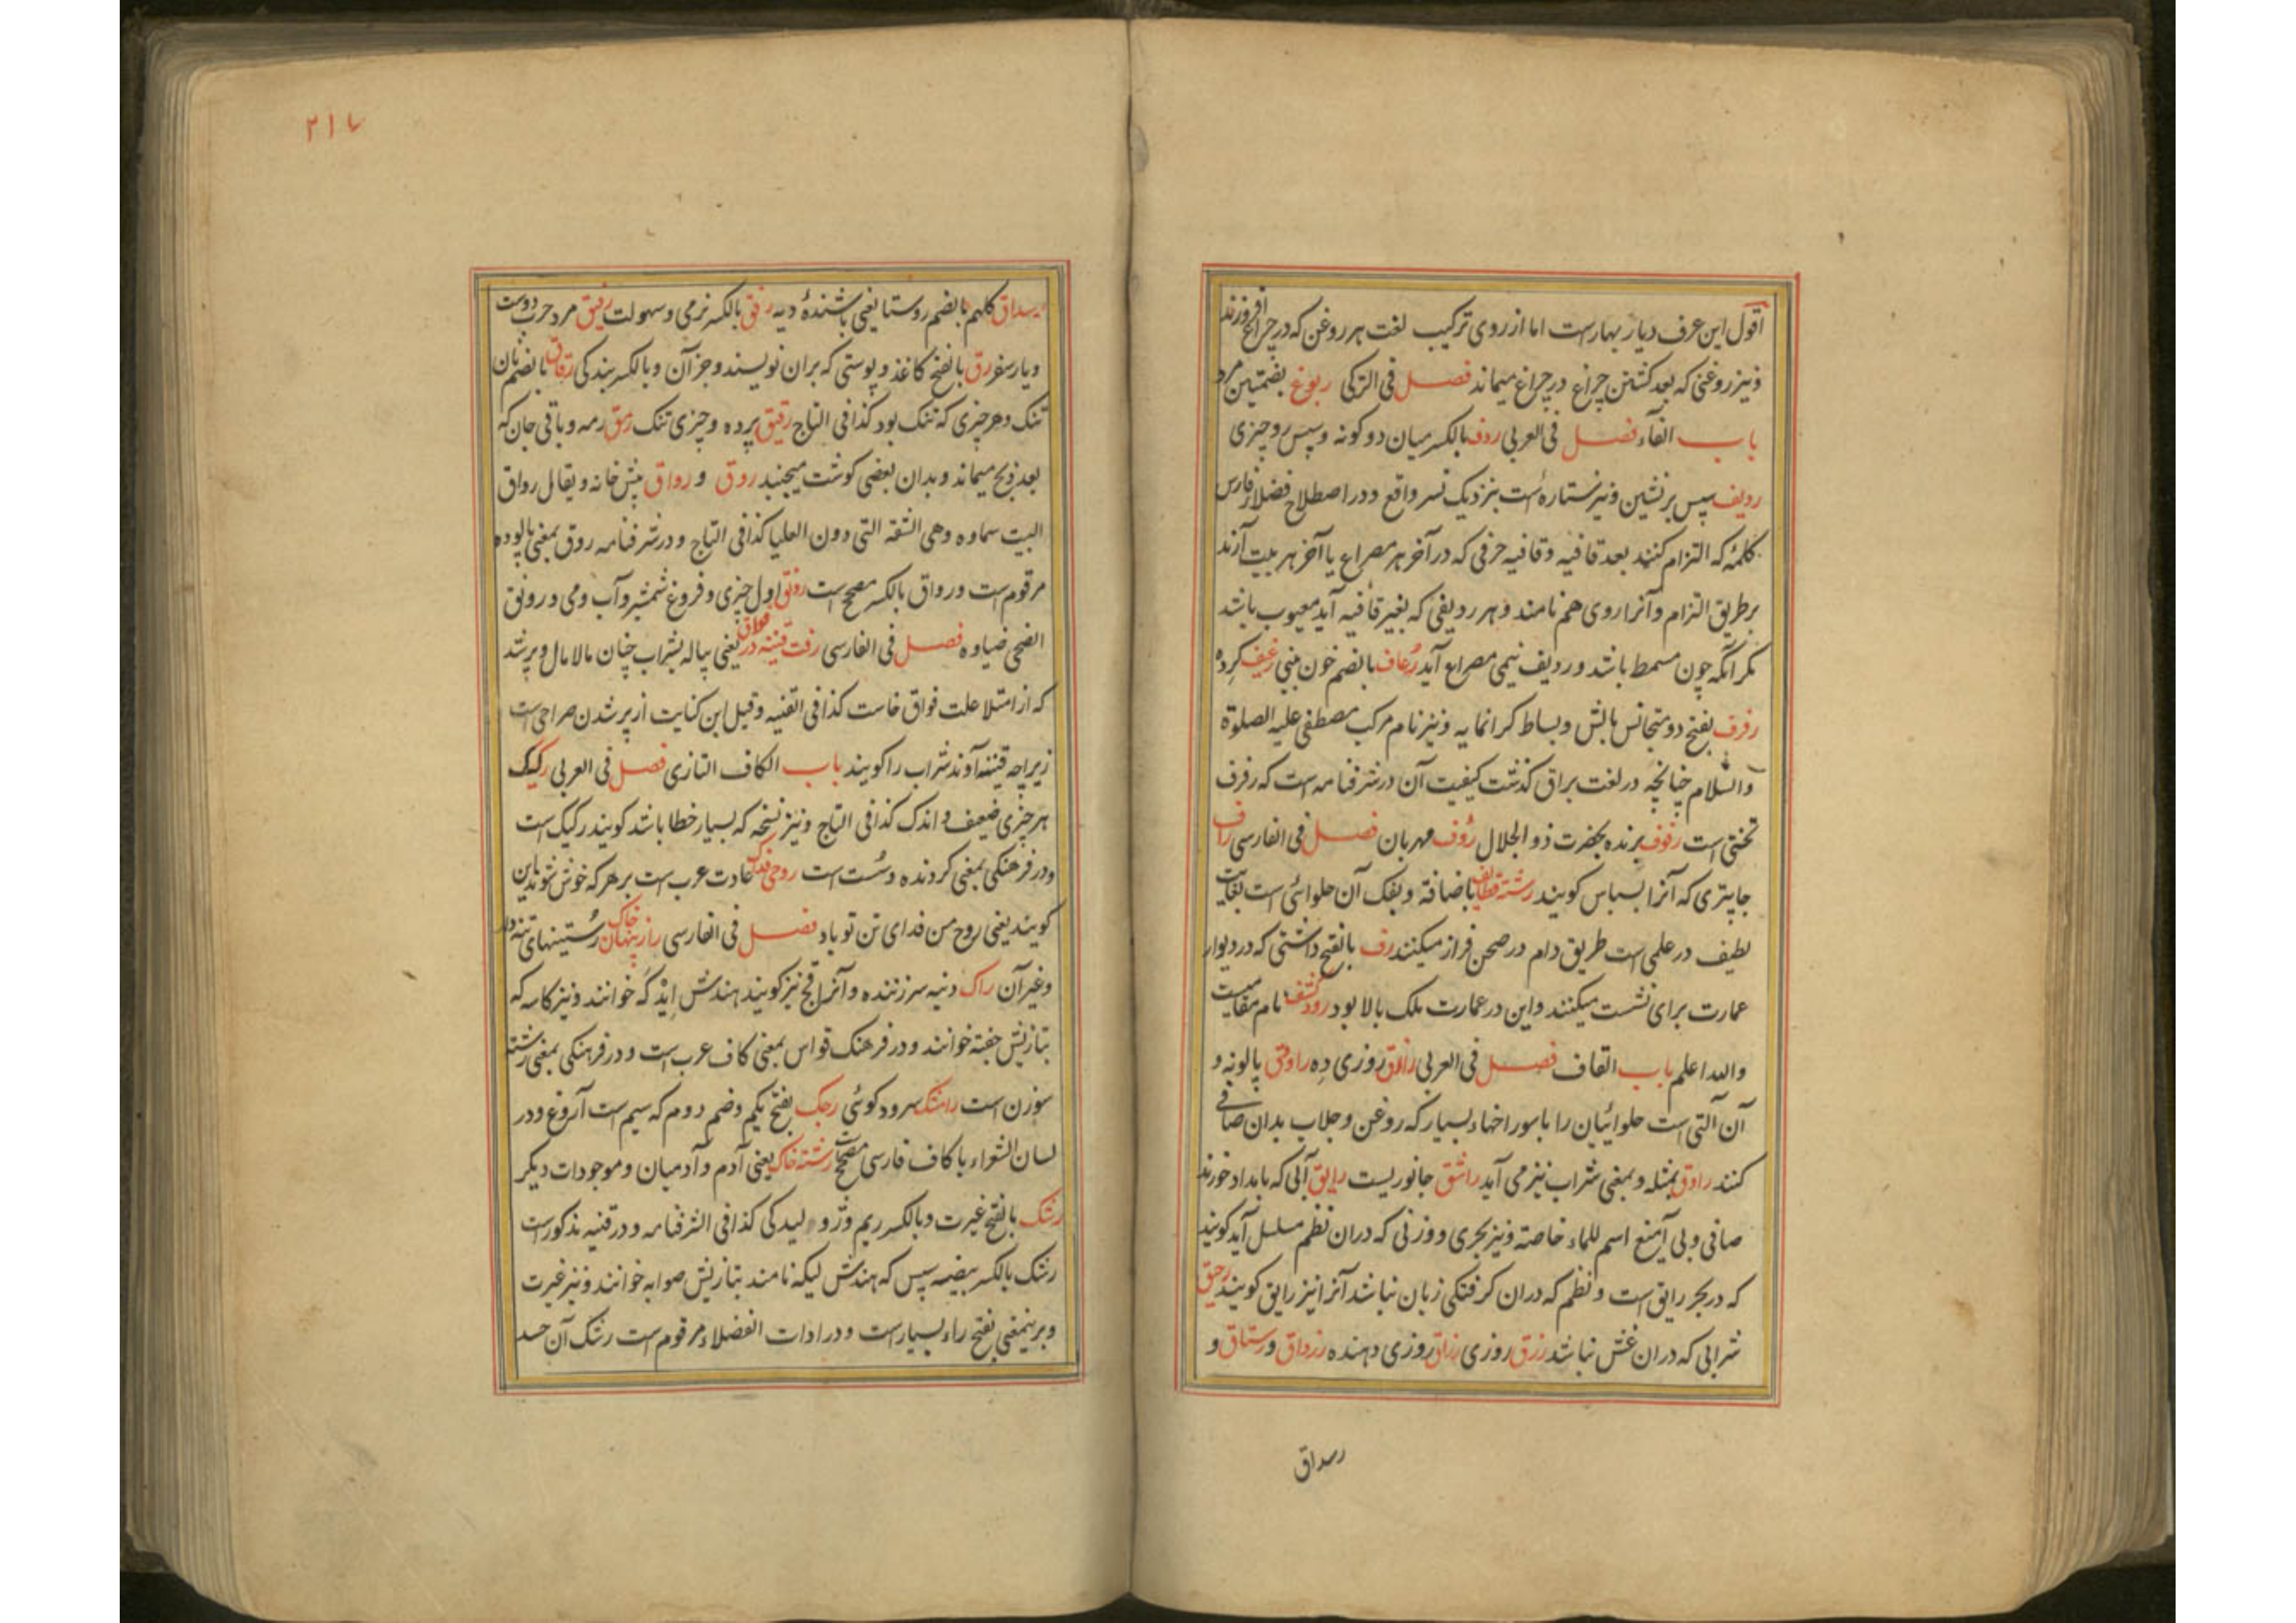 اقول این عرف دیار بهارست اما از روی ترکیب لغت هر روغن که در چراغ افروزند
و نیز روغنی که بعد کشتن چراغ در چراغ میماند فصل فی الترکی ربوغ بضمتین مرد
باب الفاء فصل فی العربی ردف بالکسر میان دو کونه و سپس رو چیزی
ردیف سپس بر نشین و نیز ستاره است بنزدیک نسر واقع و در اصطلاح فضلاء فارس
کلمهٔ که التزام کنند بعد قافیه و قافیه حرفی که در آخر هر مصراع یا آخر هر بیت آرند
بر طریق التزام و آنرا روی هم نامند و هر ردیفی که بغیر قافیه آید معیوب باشد
مکر آنکه چون مسمط باشد و ردیف نیمی مصراع آید رعاف بالضم خون بینی رغیف کرده
رفرف بفتح دو متجانس بالش و بساط کرانمایه و نیز نام مرکب مصطفی علیه الصلوة
والسلام چنانچه در لغت براق کذشت کیفیت آن در شرفنامه است که رفرف
تختی است رفوف برنده بحضرت ذو الجلال رؤف مهربان فصل فی الفارسی راف
جاپتری که آنرا بسباس کویند رشته قطایف باضافة و بفک آن حلوائی است بغایت
لطیف در علمی است طریق دام در صحن فراز میکنند رف بالفتح داشتی که در دیوار
عمارت برای نشست میکنند و این در عمارت ملک بالا بود رود کشف نام مقامیست
والله اعلم باب القاف فصل فی العربی رازق روزی ده راوق پالونه و
آن آلتی است حلوائیان را با سوراخهاء بسیار که روغن و جلاب بدان صافی
کنند راوق بمثله و بمعنی شراب نیز می آید راشق جانوریست رایق آبی که بامداد خورند
صافی و بی آمیغ اسم للماء خاصة و نیز بحری و وزنی که دران نظم مسلسل آید کویند
که در بحر رایق است و نظم که دران کرفتکی زبان نباشد آنرا نیز رایق کویند رحیق
شرابی که دران غش نباشد رزق روزی رزاق روزی دهنده رزداق و رستاق و
رسداق
۲۱۷
رسداق کلهم بالضم روستا یعنی باشندهٔ دیه رفق بالکسر نرمی و سهولت رفیق مرد چرب دوست
و یار سفر رق بالفتح کاغذ و پوستی که بران نویسند و جز آن و بالکسر بندکی رقاق بالضم نان
تنک و هر چیزی که تنک بود کذا فی التاج رقیق پرده و چیزی تنک رمق رمه و باقی جان که
بعد ذبح میماند و بدان بعضی کوشت میجنبد روق و رواق پیش خانه و یقال رواق
البیت سماوه وهی الشقة التی دون العلیا کذا فی التاج و در شرفنامه روق بمعنی پالوده
مرقوم است و رواق بالکسر مصحح است رونق اول چیزی و فروغ شمشیر و آب و می و رونق
الضحی ضیاوه فصل فی الفارسی رفت قنینه در فواق یعنی پیاله بشراب چنان مالامال و پر شد
که از امتلا علت فواق خاست کذا فی القنیه و قیل این کنایت از پر شدن صراحی است
زیراچه قنینه آوند شراب را کویند باب الکاف التازی فصل فی العربی رکیک
هر چیزی ضعیف و اندک کذا فی التاج و نیز نسخه که بسیار خطا باشد کویند رکیک است
و در فرهنکی بمعنی کردنده و سست است روحی فدک عادت عرب است بر هر که خوش شوند این
کویند یعنی روح من فدای تن تو باد فصل فی الفارسی راز پنهان خاک رستینهای
و غیر آن راک دنبه سر زننده و آنرا قچ نیز کویند هندش خوانند و نیز کاسه که
بتازیش جفنه خوانند و در فرهنک قواس بمعنی کاف عرب است و در فرهنکی بمعنی رشته
سوزن است رامشک سرود کوئی رجک بفتح یکم و ضم دوم که سیم است آروغ و در
لسان الشعراء با کاف فارسی مصحح است رشته خاک یعنی آدم و آدمیان و موجودات دیکر
رشک بالفتح غیرت و بالکسر ریم و ژولیدکی کذا فی الشرفنامه و در قنیه مذکور است
رشک بالکسر بیضه سپس که هندش لیکه نامند بتازیش صوابه خوانند و نیز غیرت
و برینمعنی بفتح راء بسیار است و در ادات الفضلاء مرقوم است رشک آن حسد